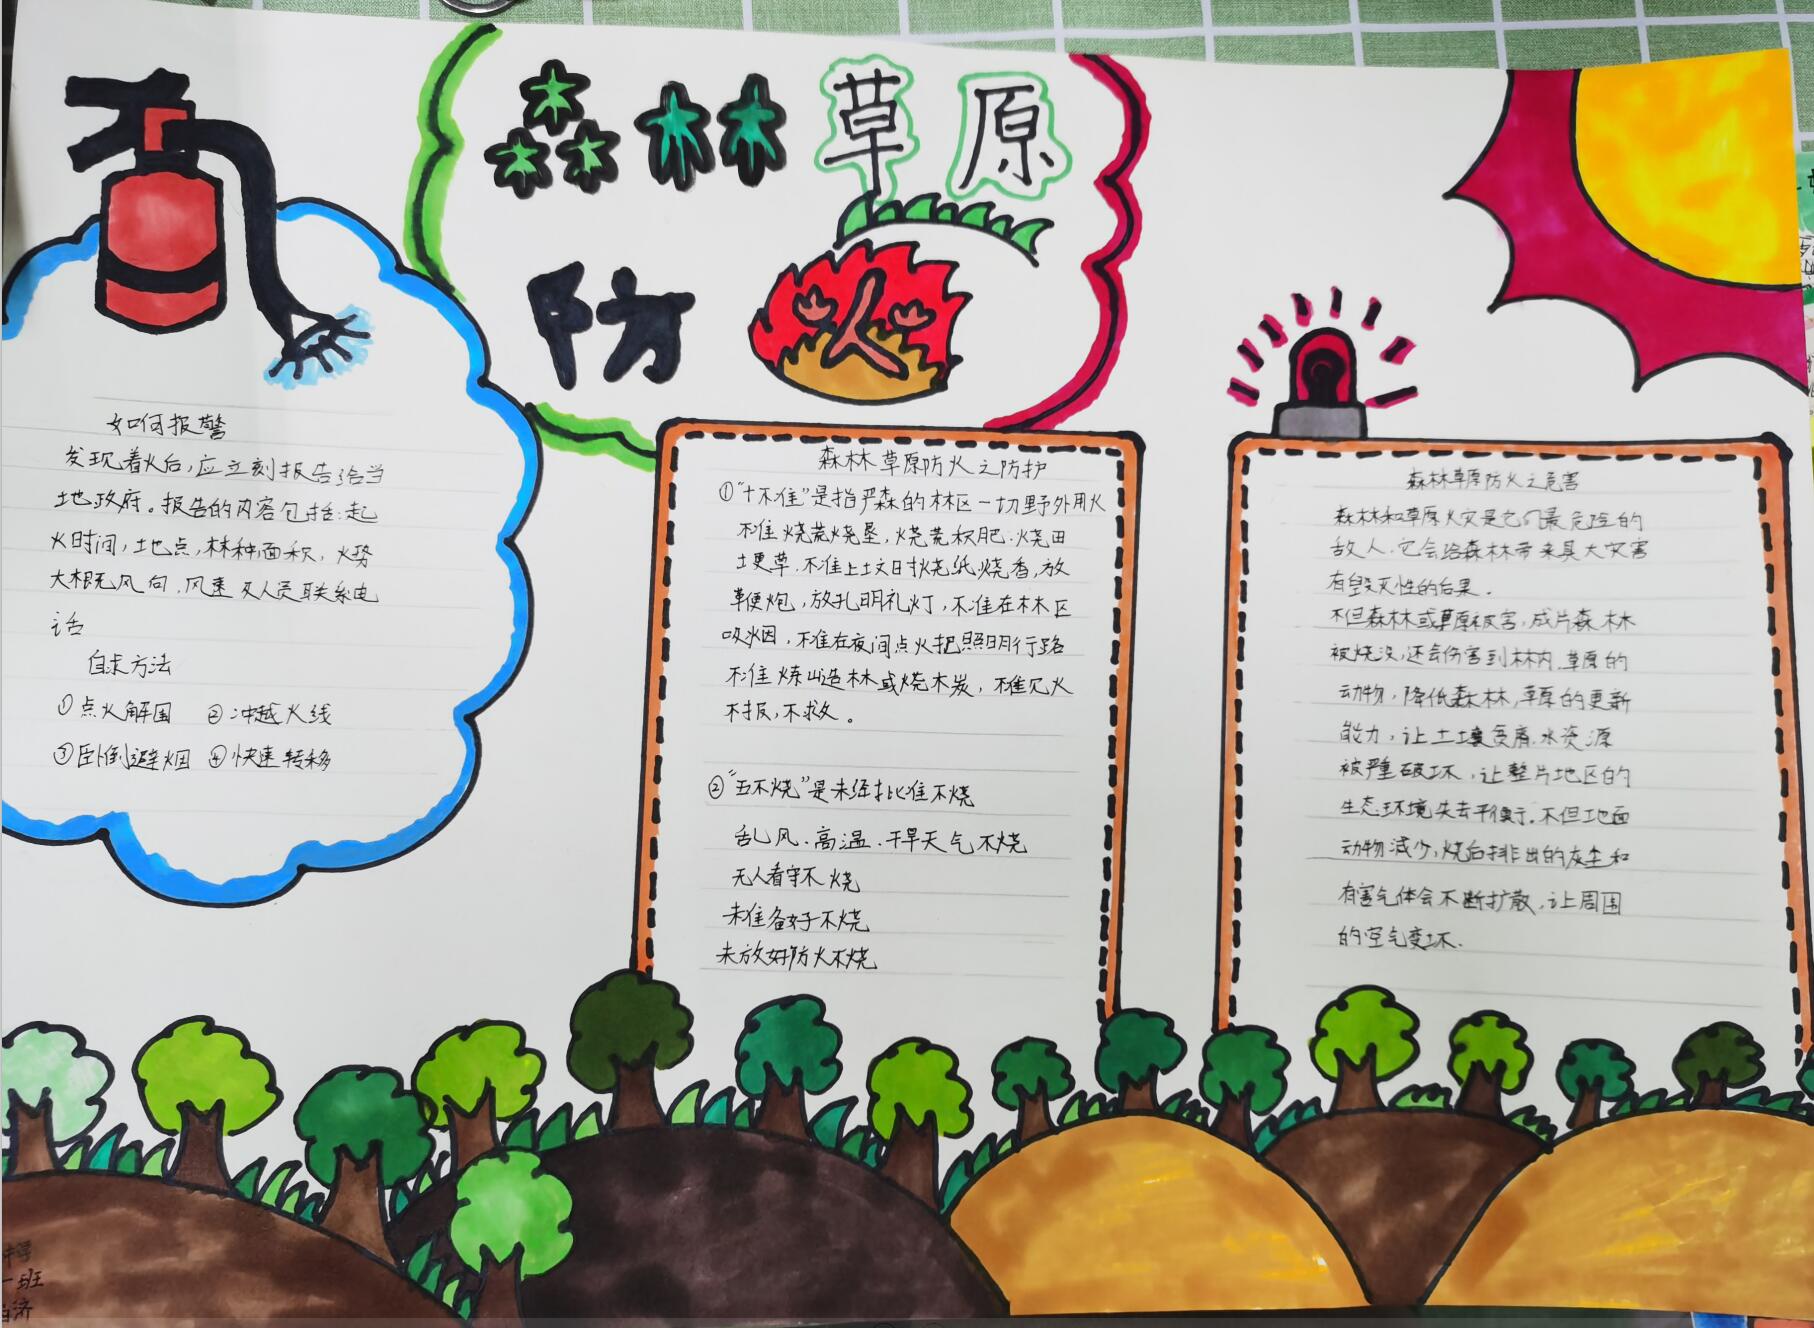 森林草原
防火
如何报警
发现着火后,应立刻报告给当
地政府。报告的内容包括:起
火时间,地点,林种面积,火势
大概无风向,风速及人员联系电
话
自求方法
①点火解围 ②冲越火线
③卧倒避烟 ④快速转移
森林草原防火之防护
①“十不准”是指严森的林区一切野外用火
不准烧荒烧垦,烧荒积肥.烧田
埂草,不准上坟日扒烧纸烧香,放
鞭炮,放孔明礼灯,不准在林区
吸烟,不准在夜间点火把照明行路
不准炼山造林或烧木炭,不准见火
不报,不救。
②“五不烧”是未经批准不烧
乱风.高温.干旱天气不烧
无人看守不烧
未准备好不烧
未放好防火不烧
森林草原防火之危害
森林和草原火灾是它们最危险的
敌人.它会给森林带来具大灾害
有毁灭性的后果.
不但森林或草原被害,成片森林
被烧没,还会伤害到林内.草原的
动物,降低森林,草原的更新
能力,让土壤贫瘠.水资源
被严重破坏,让整片地区的
生态环境失去平衡.不但地面
动物减少,烧后排出的灰尘和
有害气体会不断扩散,让周围
的空气变坏.
一班